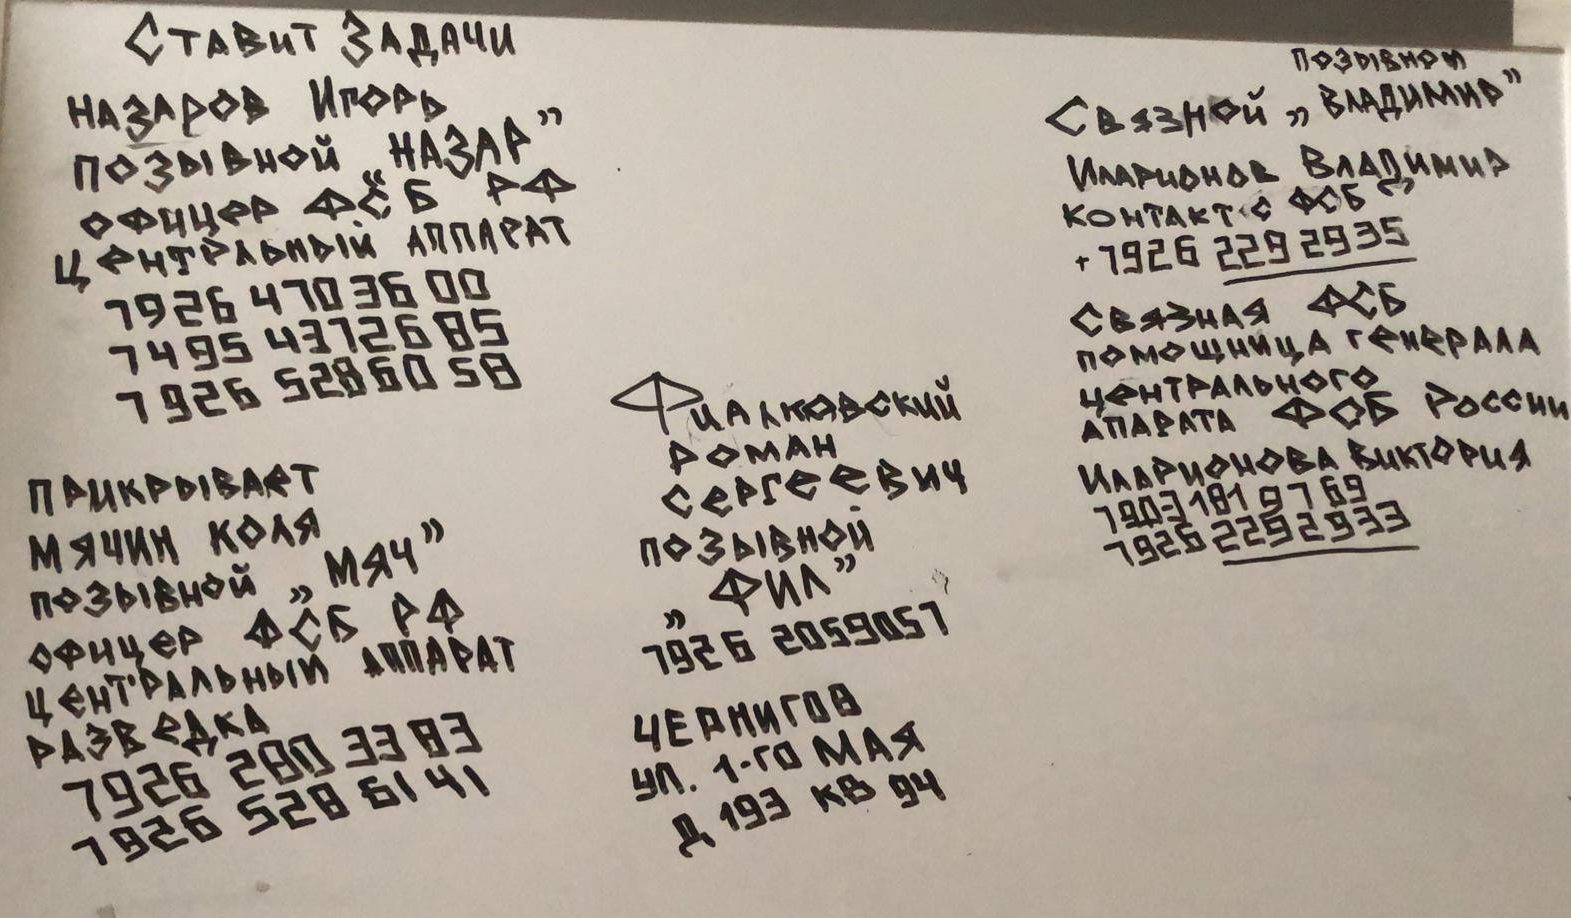 Ставит Задачи
Назаров Игорь
позывной „Назар”
офицер ФСБ РФ
Центральный аппарат
7926 470 36 00
7495 4372685
7926 52860 58
Прикрывает
Мячин Коля
позывной „Мяч”
офицер ФСБ РФ
центральный аппарат
разведка
7926 280 33 83
7926 528 61 41
Фиалковский
Роман
Сергеевич
позывной
„Фил”
7926 2059057
Чернигов
ул. 1-го Мая
д 193 кв 94
позывной
Связной „Владимир”
Иларионов Владимир
контакт с ФСБ
+7926 229 2935
Связная ФСБ
помощница генерала
центрального
апарата ФСБ России
Иларионова Виктория
7903 181 9769
7926 2292933